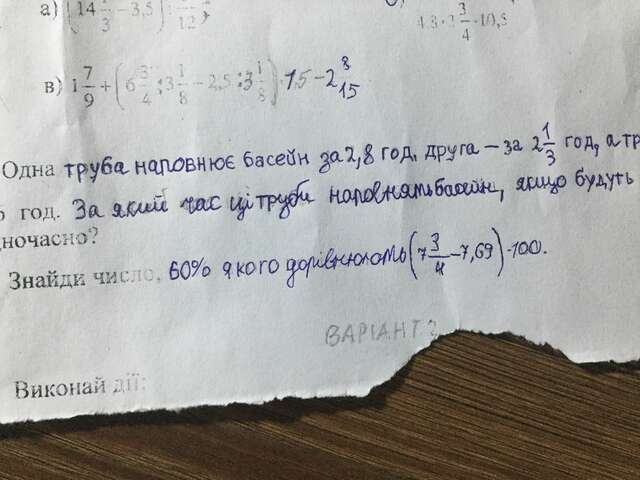 а) (14
3 - 3,5) : 
12
4,8 : 2 3/4 - 10,8
в) 1 7/9 + (6 3/4 : 3 1/8 - 2,5 : 3 1/8) 15 - 2 8/15
Одна труба наповнює басейн за 2,8 год, друга – за 2 1/3 год, а
год. За який час ці труби наповнять басейн, якщо будуть
Знайди число, 60% якого дорівнюють (7 3/4 - 7,69) · 100.
ВАРІАНТ 2
Виконай дії: